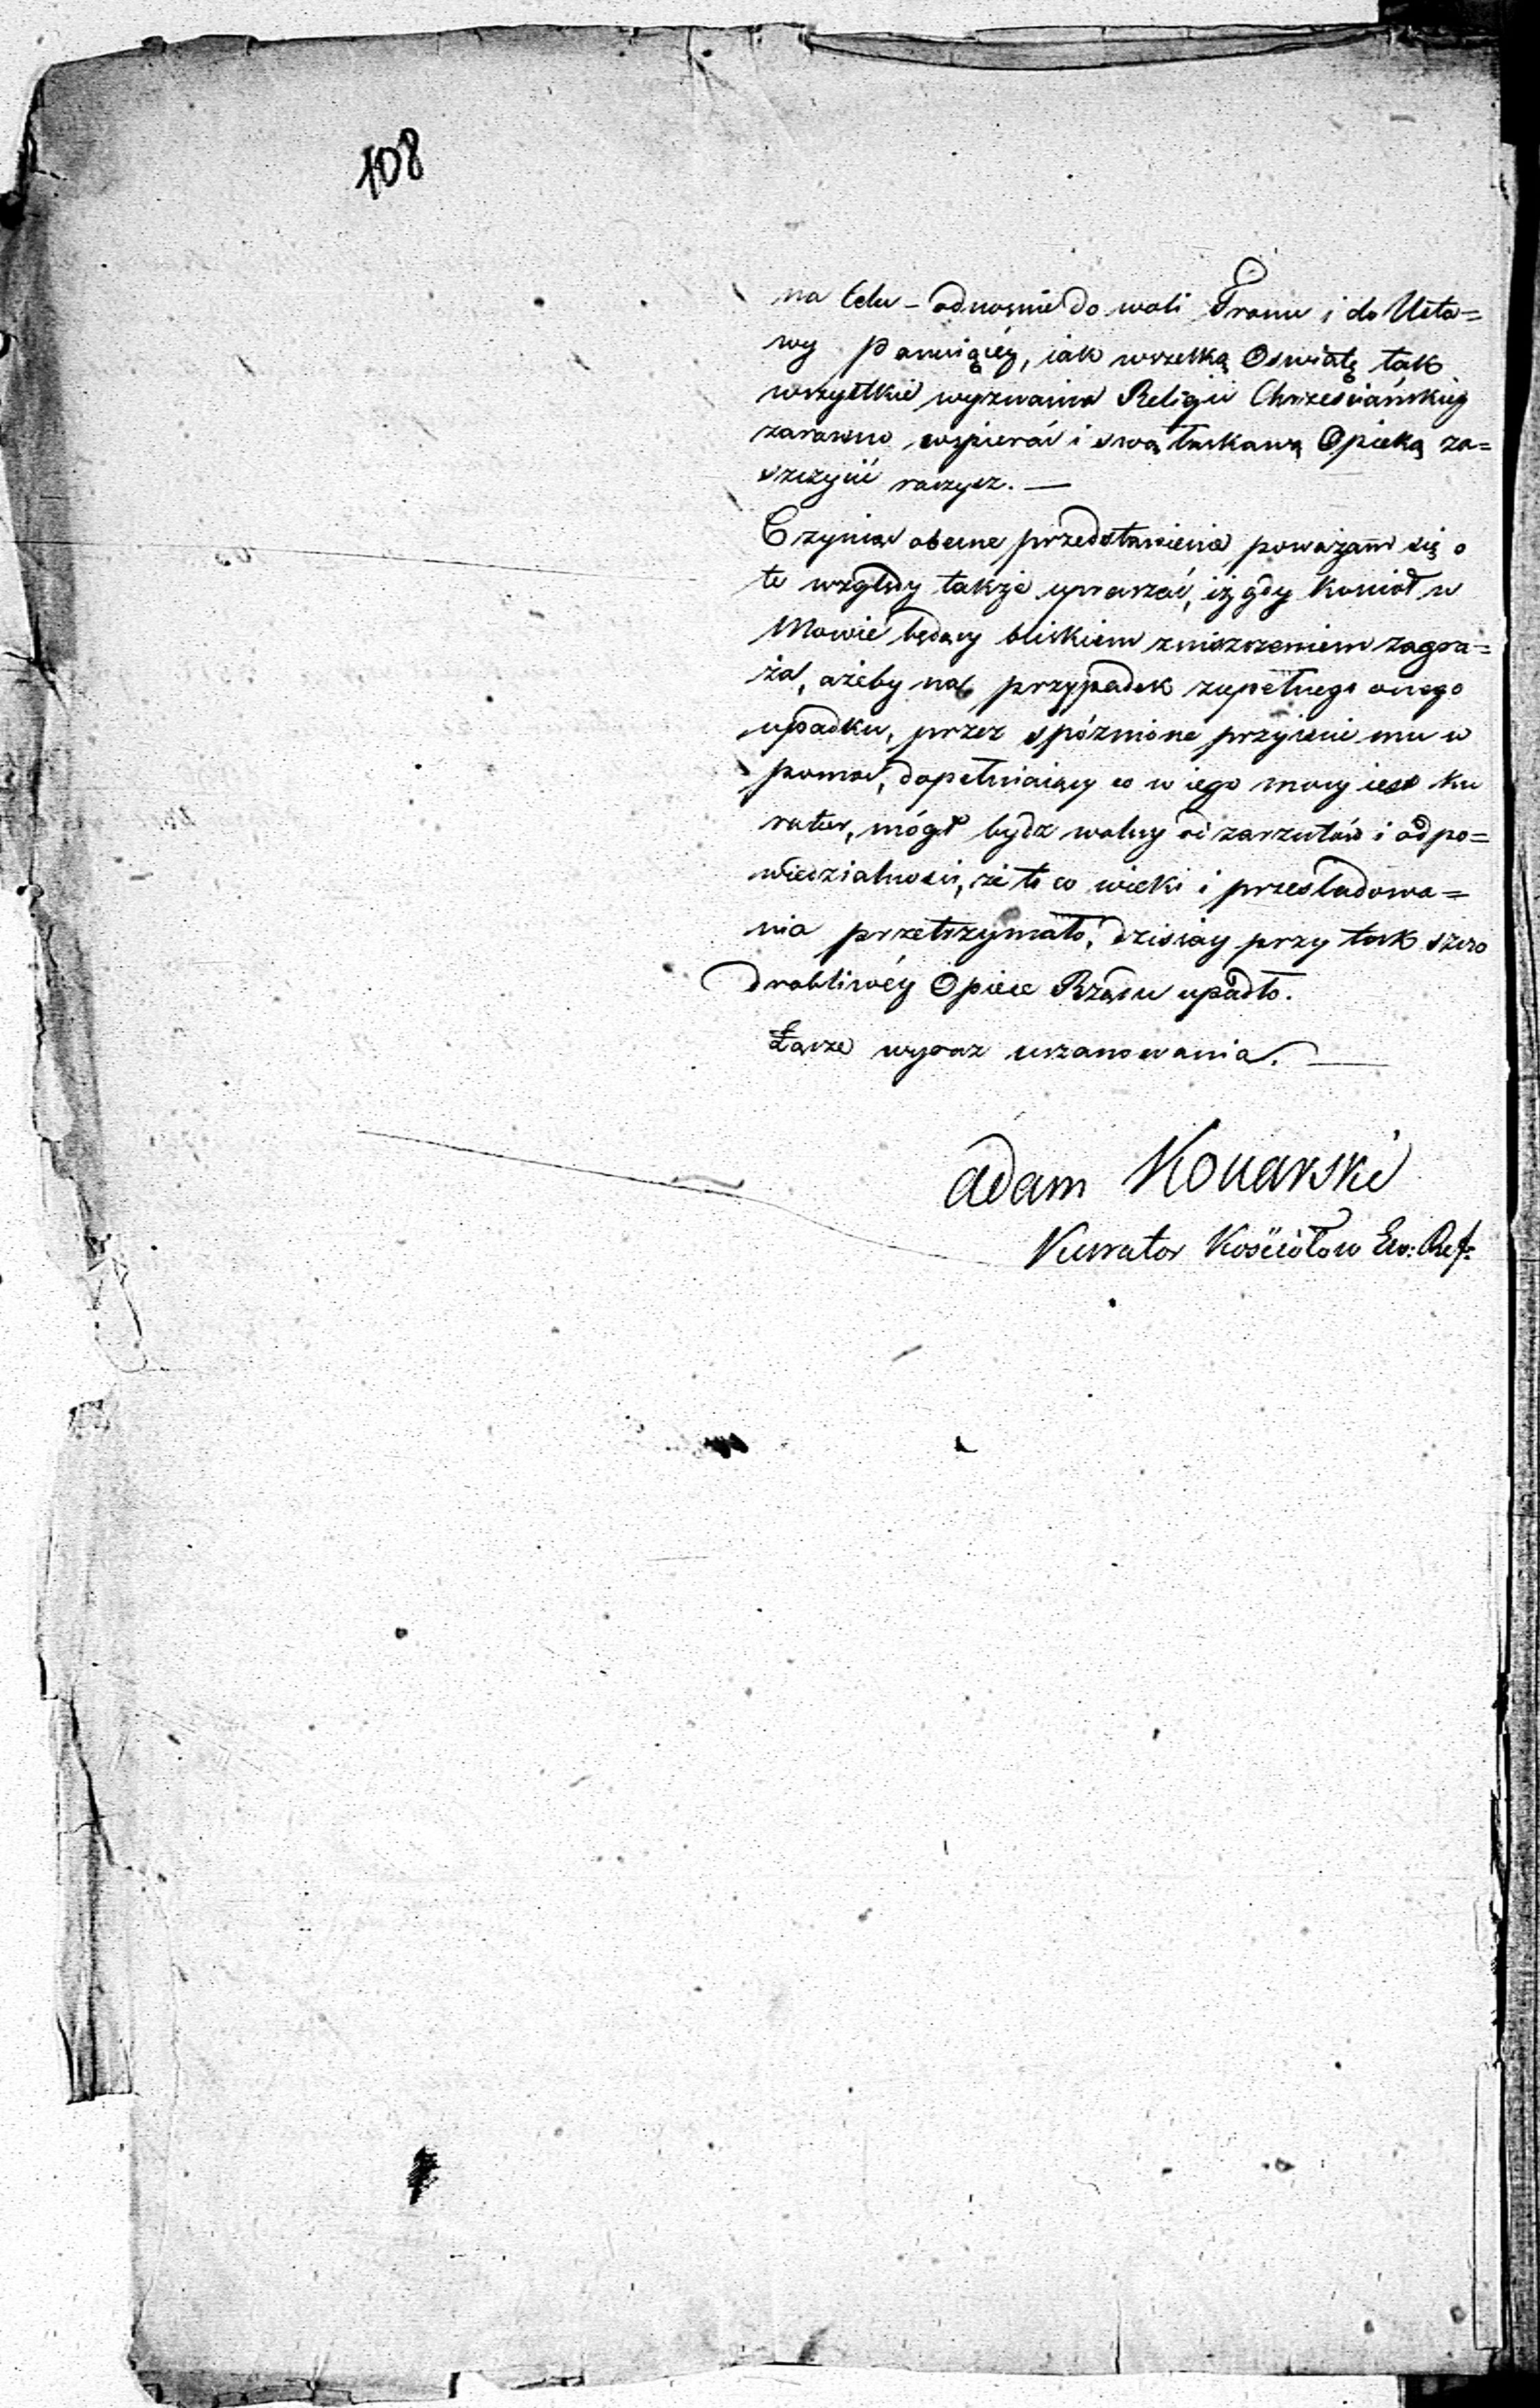 108
na Celu – odnośnie do woli Tronu i do Usta=
wy Panuiącéy, iak wszelką Oswiatę tak
wszystkie wyznania Religii Chrzesciańskiey
zarowno wspierać i swą łaskawą Opieką za=
szczycić raczysz. —
Czyniąc obecne przedstawienie poważam się o
te względy także upraszać, iż gdy Kosciół w
będący bliskiem zniszczeniem zagra=
ża, ażeby na przypadek zupełnego onego
upadku, przez spóźnione przyiście mu w
pomoc, dopełniaiący co w iego mocy iest ku
rator, mógł bydz wolny od zarzutów i odpo=
wiedzialnosci, że to co wieki i przesladowa=
nia przetrzymało, dzisiay przy tak szczo
drobliwéy Opiece Rządu upadło.
Łącze wyraz uszanowania. —
Adam Konarski
Kurator Kościołow Ew: Ref: